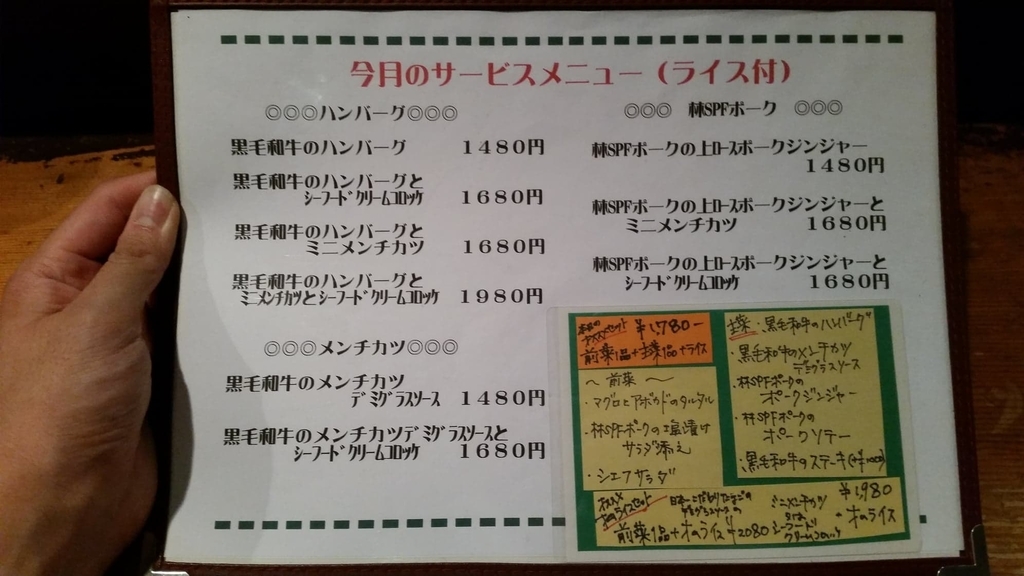 今月のサービスメニュー（ライス付）
◎◎◎ハンバーグ◎◎◎
黒毛和牛のハンバーグ 1480円
黒毛和牛のハンバーグと
シーフードクリームコロッケ 1680円
黒毛和牛のハンバーグと
ミニメンチカツ 1680円
黒毛和牛のハンバーグと
ミニメンチカツとシーフードクリームコロッケ 1980円
◎◎◎メンチカツ◎◎◎
黒毛和牛のメンチカツ
デミグラスソース 1480円
黒毛和牛のメンチカツデミグラスソースと
シーフードクリームコロッケ 1680円
◎◎◎ 林SPFポーク ◎◎◎
林SPFポークの上ロースポークジンジャー
1480円
林SPFポークの上ロースポークジンジャーと
ミニメンチカツ 1680円
林SPFポークの上ロースポークジンジャーと
シーフードクリームコロッケ 1680円
本日の
オススメセット ¥1,780-
前菜1品+主菜1品+ライス
～ 前菜 ～
・マグロとアボカドのタルタル
・林SPFポークの塩漬け
サラダ添え
・シェフサラダ
主菜・黒毛和牛のハンバーグ
・黒毛和牛のメンチカツ
デミグラスソース
・林SPFポークの
ポークジンジャー
・林SPFポークの
ポークソテー
・黒毛和牛のステーキ
オススメ
オムライスセット
日本一こだわりたまごの
デミグラスソースの
前菜1品+オムライス ¥2080
ミニメンチカツ
シーフード
クリームコロッケ
¥1,980
オムライス